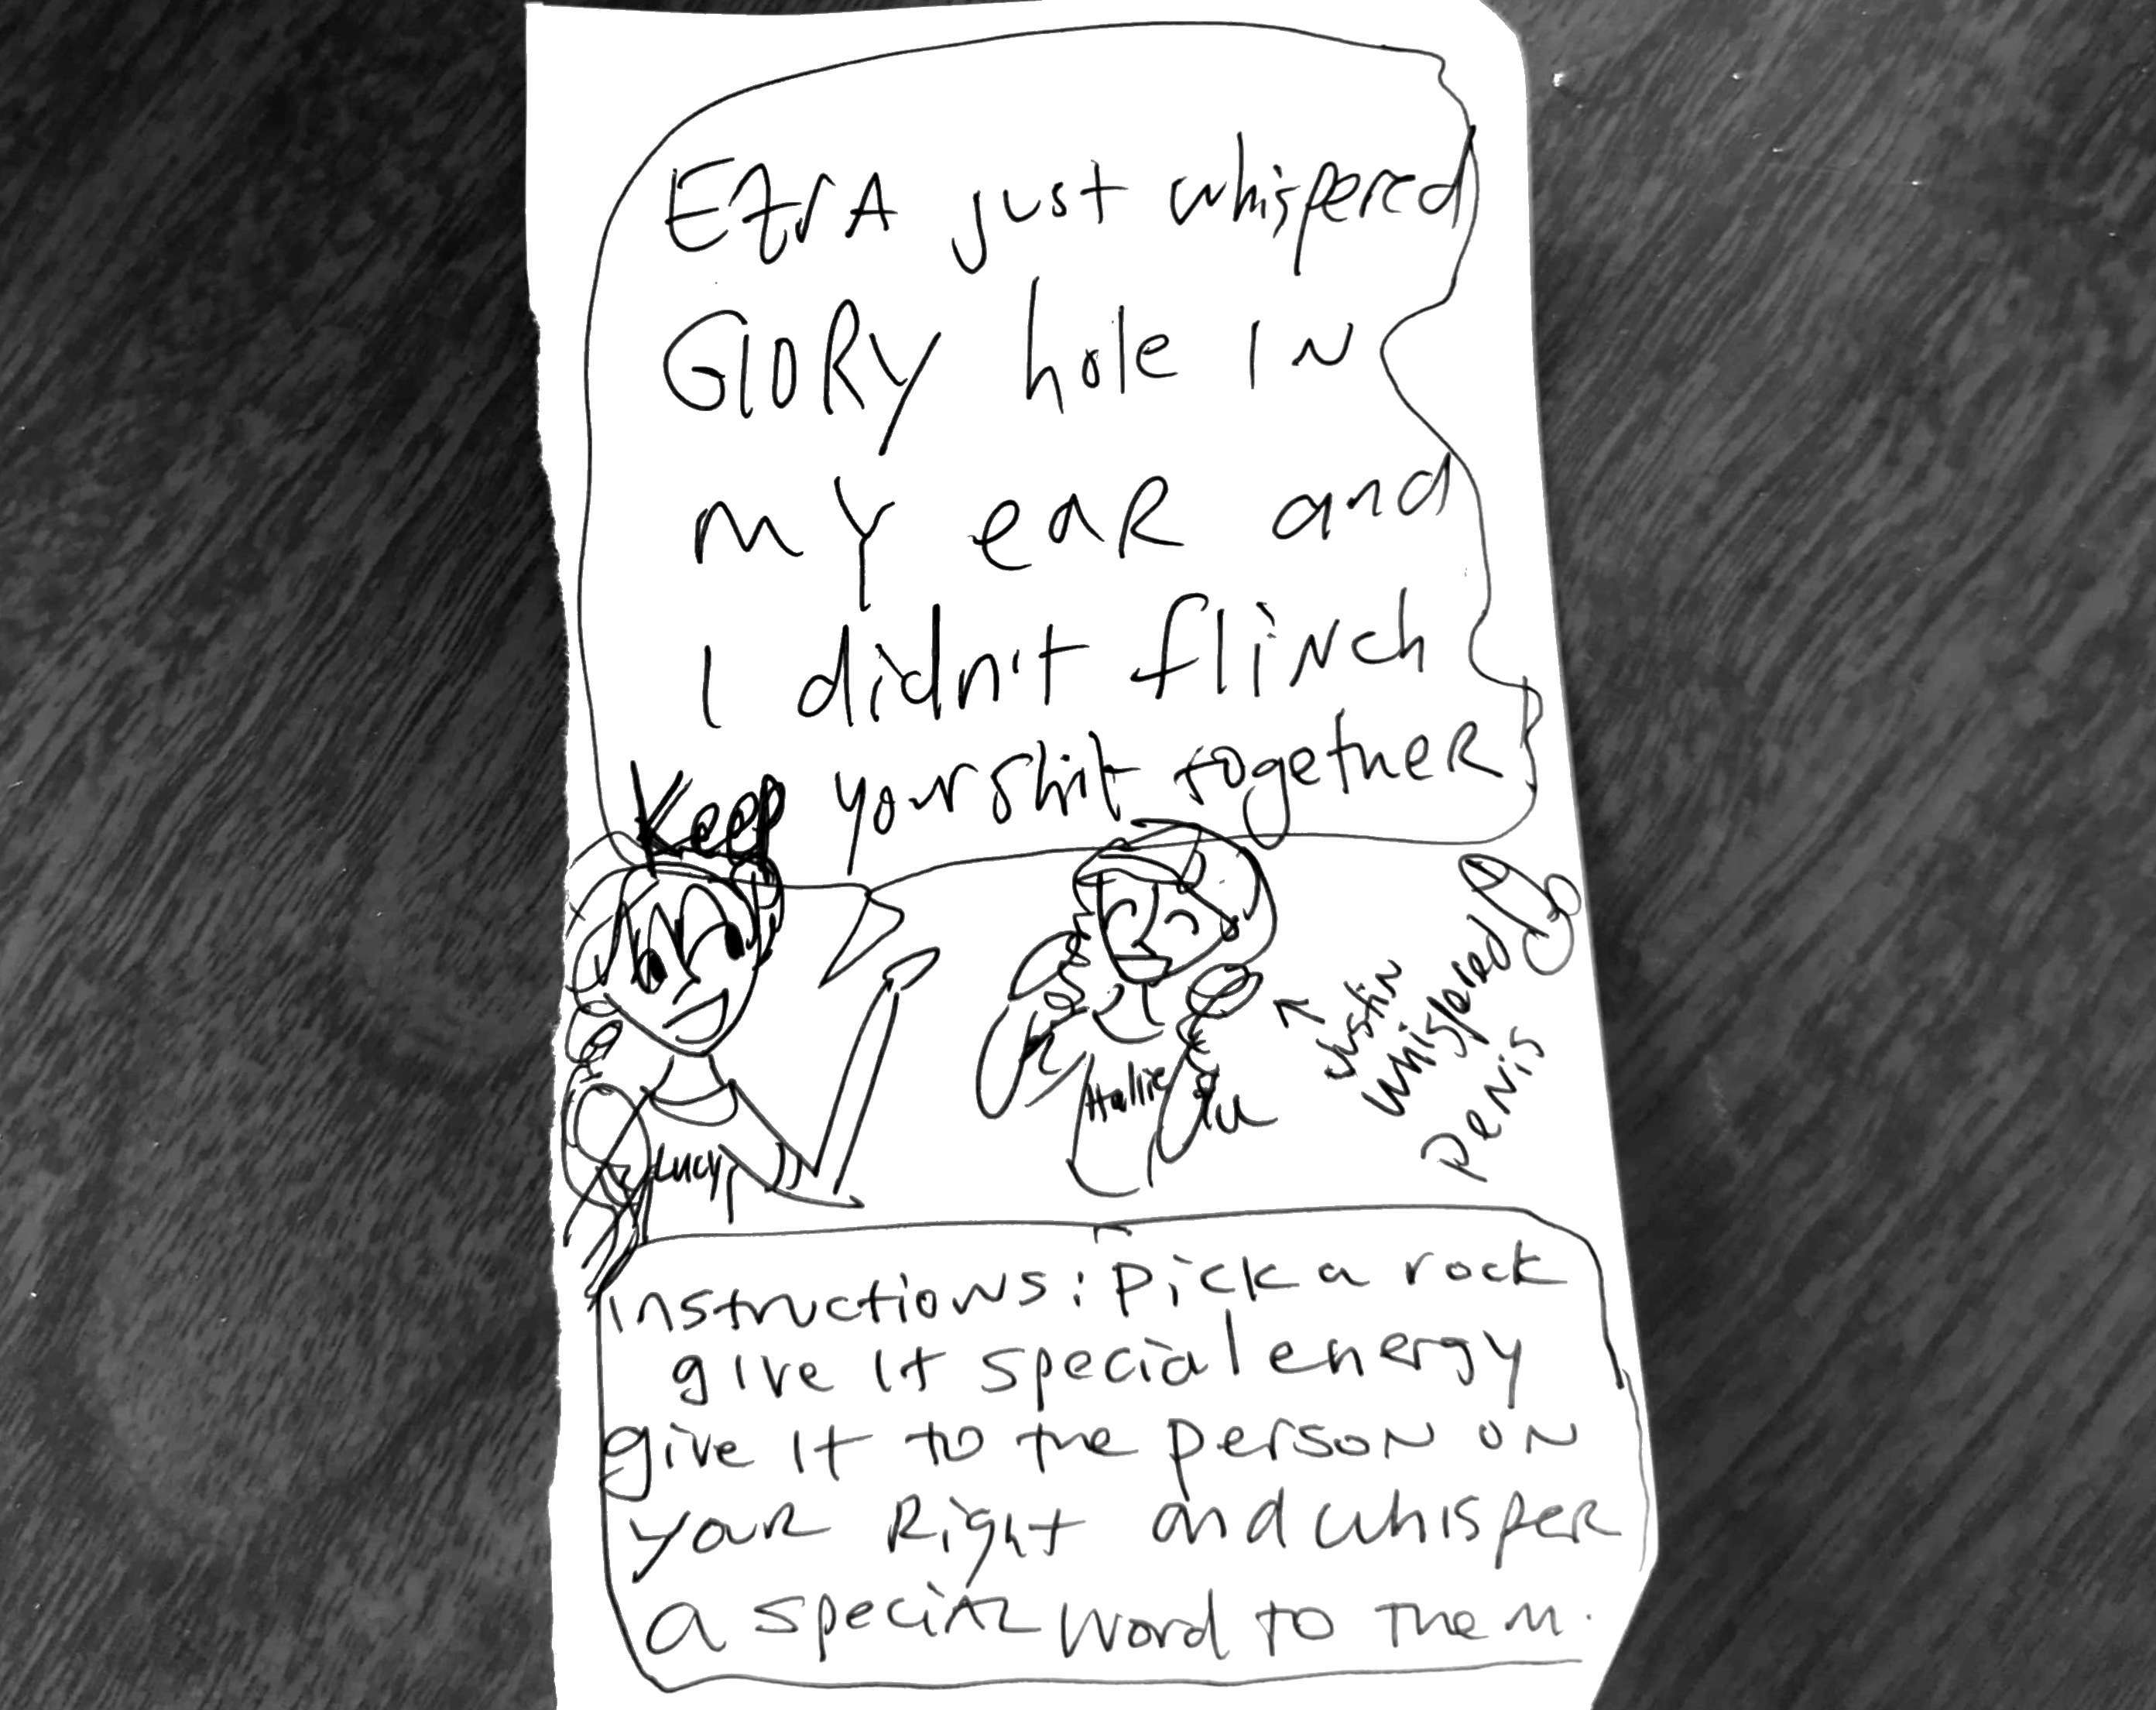 EzrA just whispered
GlORy hole IN
mY eaR and
I didn't fliNch
Keep your shit together
Lucy
Hallie
Justin
whispered
peNis
instructioNs: pick a rock
give it special energy
give it to the persoN oN
youR Right and whisper
a speciAL word to TheM.